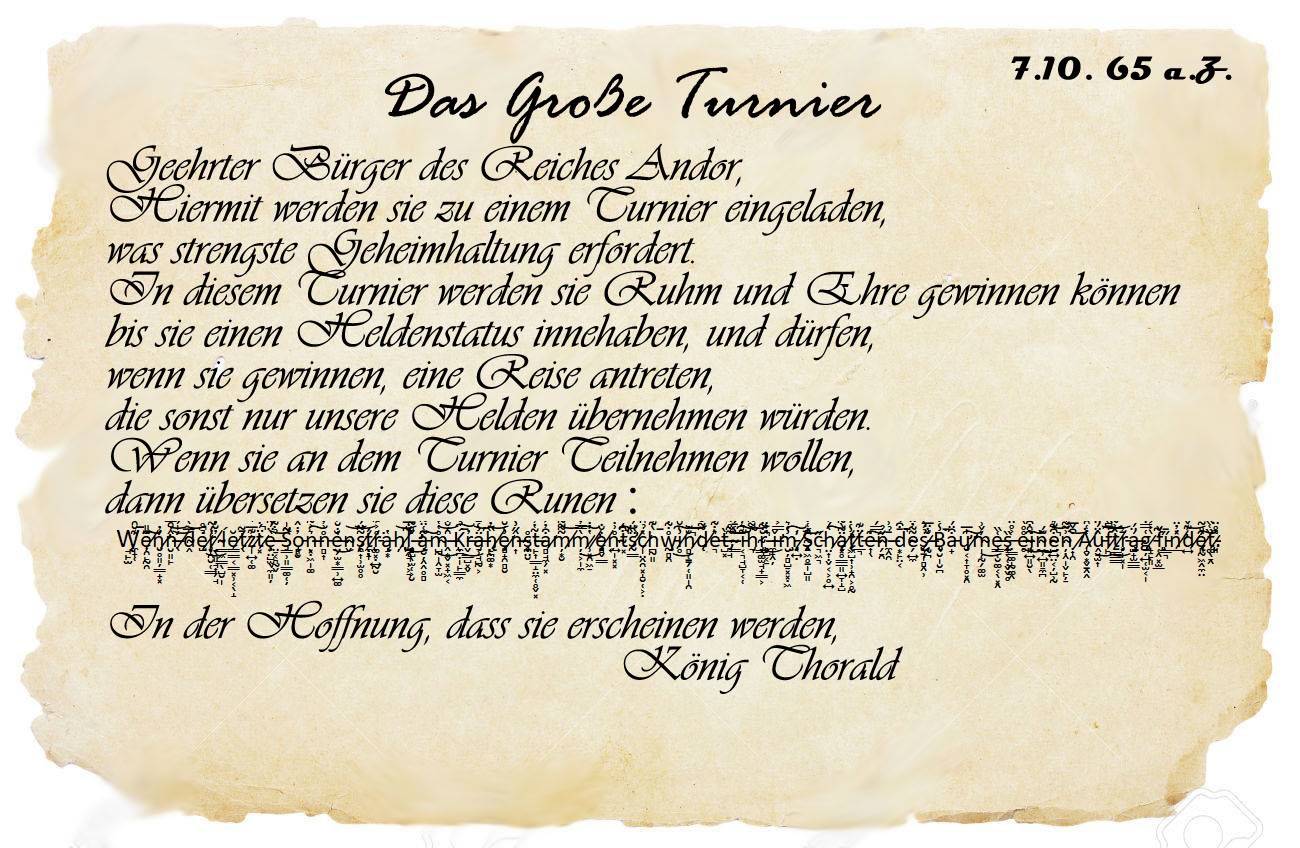 7.10. 65 a.Z.
Das Große Turnier
Geehrter Bürger des Reiches Andor,
Hiermit werden sie zu einem Turnier eingeladen,
was strengste Geheimhaltung erfordert.
In diesem Turnier werden sie Ruhm und Ehre gewinnen können
bis sie einen Heldenstatus innehaben, und dürfen,
wenn sie gewinnen, eine Reise antreten,
die sonst nur unsere Helden übernehmen würden.
Wenn sie an dem Turnier Teilnehmen wollen,
dann übersetzen sie diese Runen :
Wenn der letzte Sonnenstrahl am Krähenstamm entschwindet, ihr im Schatten des Baumes einen Auftrag findet.
In der Hoffnung, dass sie erscheinen werden,
König Thorald